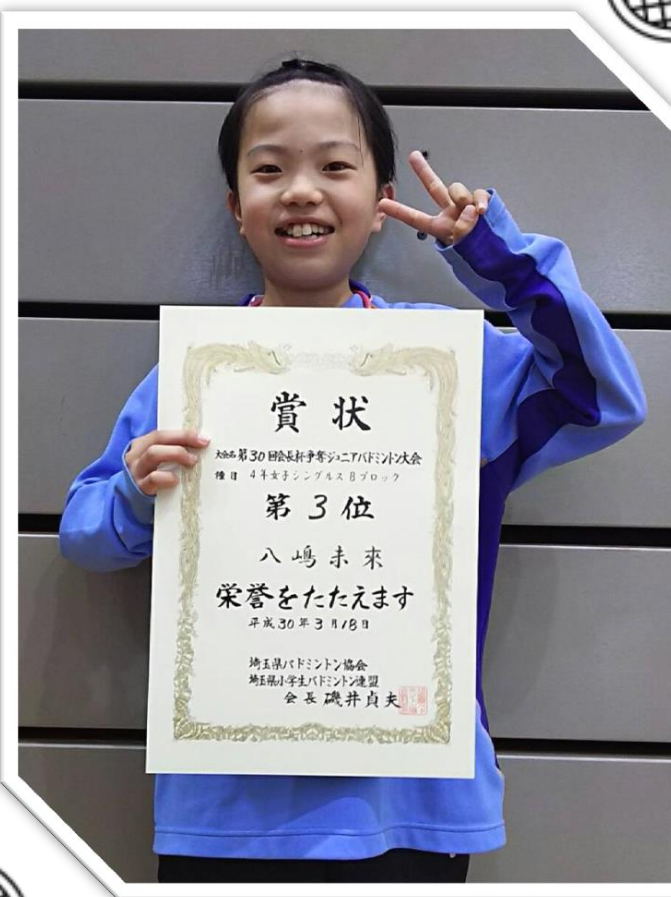 賞状
大会名 第30回会長杯争奪ジュニアバドミントン大会
種目 4年女子シングルスBブロック
第3位
八嶋未來
栄誉をたたえます
平成30年3月18日
埼玉県バドミントン協会
埼玉県小学生バドミントン連盟
会長 磯井貞夫